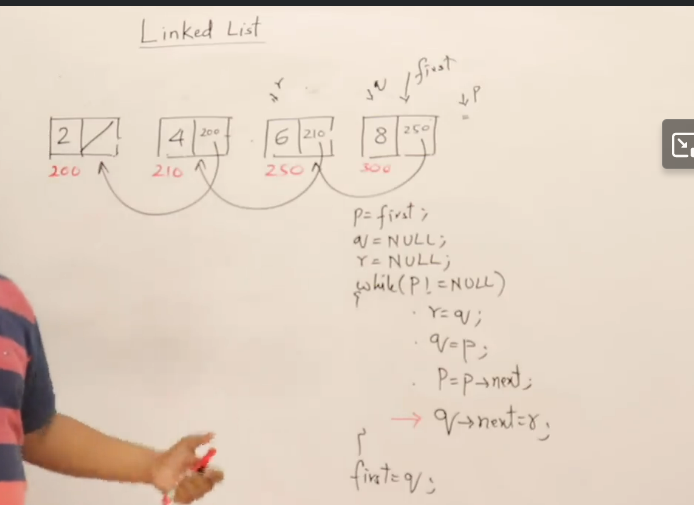 Linked List
r q first p
2 4 200 6 210 8 250
200 210 250 300
P=first;
q=NULL;
r=NULL;
while(P!=NULL)
{
r=q;
q=p;
P=p→next;
→ q→next=r;
}
first=q;